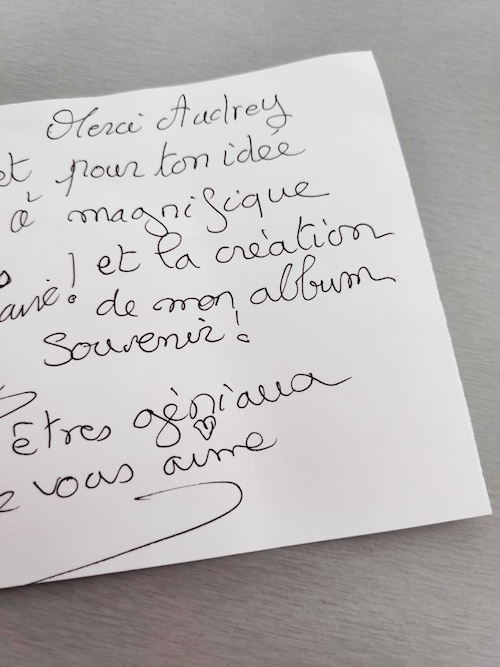 Merci Audrey
et pour ton idée
à magnifique
! et ta création
de mon album
Souvenir!
êtres géniaux
vous aime